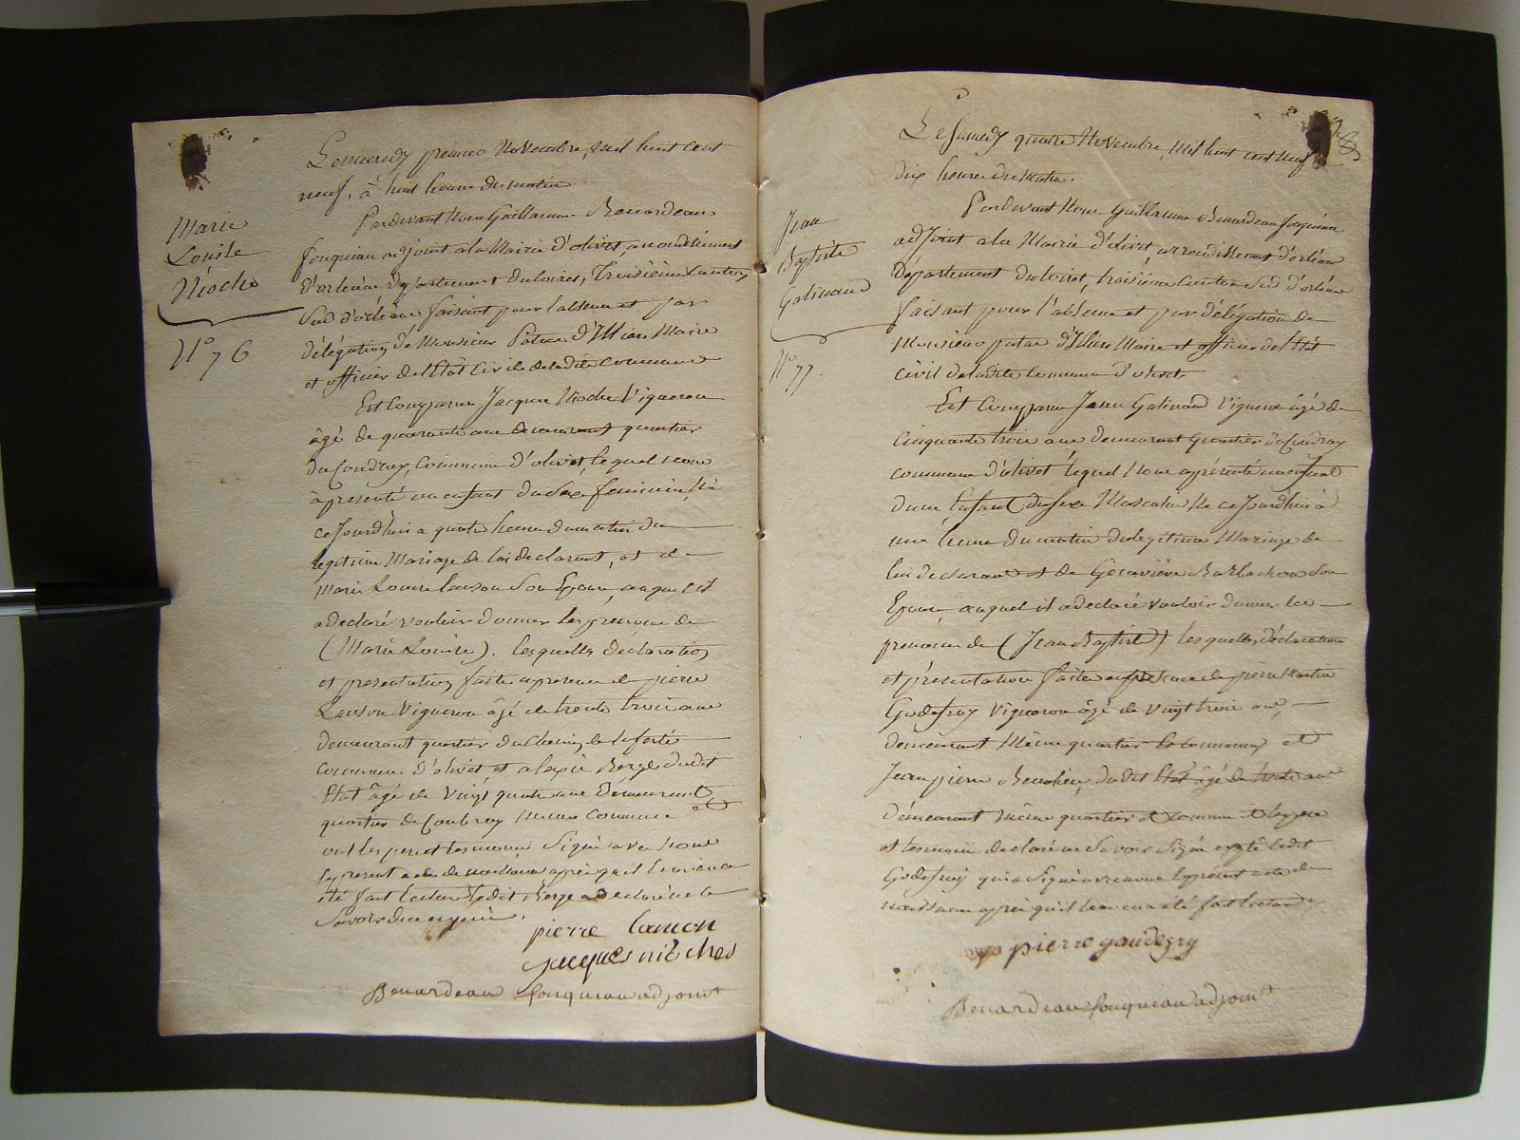 Marie
Louise
Nioche
N° 76
Le mercredy premier Novembre, mil huit cent
neuf, à huit heures du matin
Pardevant Nous Guillaume Benardeau
fouquiau adjoint a la Mairie d'olivet, arrondissement
d'orléans Département du loiret, Troisième Canton
Sud d'orléans faisant pour l'absence et par
délégation de Monsieur Maire
et officier de l'État Civil de la dite Commune
Est Comparu Jacques Nioche Vigneron
âgé de quarante ans demeurant quartier
du Coudray, Commune d'olivet, lequel nous
à presenté un enfant du Sexe feminin, Né
ce Jourd'hui a quatre heures du matin du
legitime Mariage de lui declarant, et de
Marie Louise Son Epouse, auquel il
a declaré vouloir donner les prenoms de
(Marie Louise). lesquelles déclaration
et presentation faites en presence de pierre
Vigneron âgé de trente trois ans
demeurant quartier du Chemin de la ferté
Commune d'olivet, et alexis Berge dudit
État âgé de Vingt quatre ans Demeurant
quartier de Coubroy même Commune et
ont les pere et temoins Signé avec Nous
le present acte de naissance après qu'il leur en a
été fait lecture, ledit Berge a declaré ne le
Savoir de ce enquis.
pierre
Jacques nioches
Benardeau fouquiau adjoint
Jean
Baptiste
Galinand
N° 77.
Le Samedy quatre Novembre, mil huit cent neuf
dix heures du Matin.
Pardevant Nous Guillaume Benardeau fouquiau
adjoint a la Mairie d'olivet, arrondissement d'orléans
Département du loiret, troisième Canton Sud d'orléans
faisant pour l'absence et par délégation de
Monsieur Maire et officier de l'État
civil de la dite Commune d'olivet.
Est Comparu Jean Galinand Vigneron âgé de
Cinquante trois ans demeurant quartier du Coudray
commune d'olivet lequel Nous a présenté un enfant
du Sexe Masculin Né ce Jourdhui à
une heure du matin du legitime Mariage de
lui declarant et de Geneviève Son
Epouse, auquel il a declaré vouloir donner les
prenoms de (Jean Baptiste) lesquelles déclaration
et présentation faites en presence de pierre
Godefroy Vigneron âgé de Vingt trois ans,
demeurant Même quartier et Commune et
Jean pierre dudit État âgé de trente ans
demeurant même quartier et Commune et les pere
et temoin declaré ne Savoir Signé excepté ledit
Godefroy qui a Signé avec nous le present acte de
naissance après qu'il leur en a été fait lecture
pierre gaudefry
Benardeau fouquiau adjoint